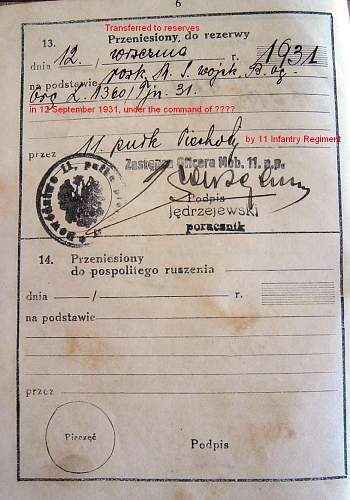 6
Transferred to reserves
13. Przeniesiony, do rezerwy
dnia 12. / września 1931
na podstawie rozk. M. S. Wojsk. B. og.
org L. 1360/ Tjn 31.
in 12 September 1931, under the command of ????
przez 11. pułk Piechoty
by 11 Infantry Regiment
Zastępca Oficera Mob. 11. p.p.
Dowództwo 11. pułku
Podpis
Jędrzejewski
porucznik
14. Przeniesiony
do pospolitego ruszenia
dnia / r.
na podstawie
przez
Pieczęć
Podpis